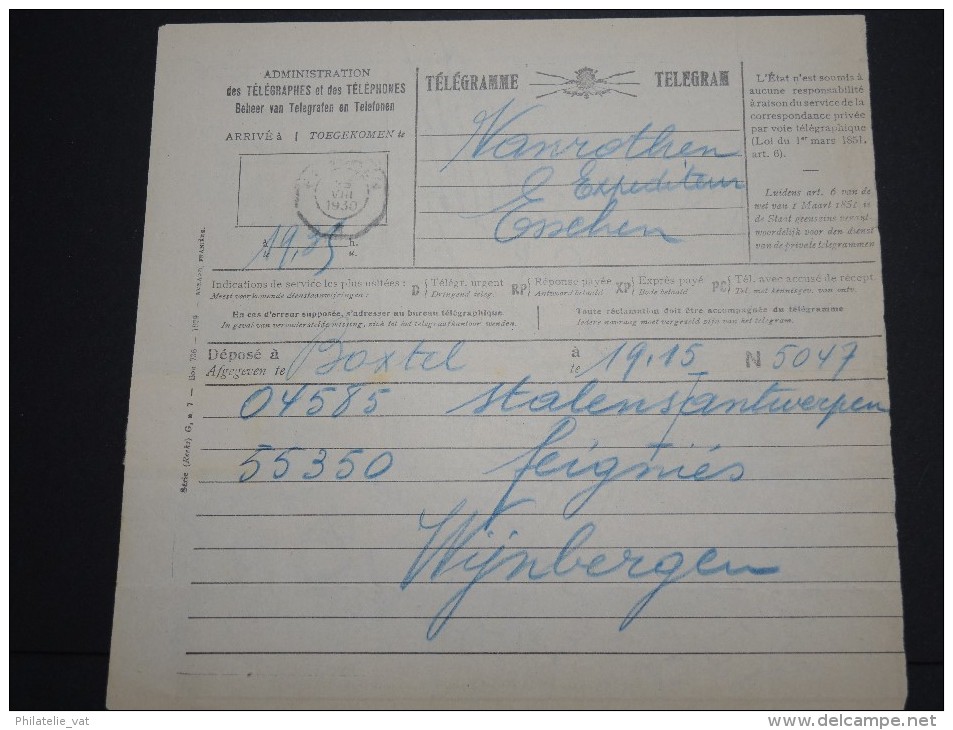 ADMINISTRATION
des TÉLÉGRAPHES et des TÉLÉPHONES
Beheer van Telegrafen en Telefonen
ARRIVÉ à | TOEGEKOMEN te
VIII
1930
à 19.25 h.
u.
TÉLÉGRAMME TELEGRAM
Vanrothen
Expediteur
Esschen
L'État n'est soumis à
aucune responsabilité
à raison du service de la
correspondance privée
par voie télégraphique
(Loi du 1er mars 1851,
art. 6).
Luidens art. 6 van de
wet van 1 Maart 1851 is
de Staat geenszins verant-
woordelijk voor den dienst
van de private telegrammen
Indications de service les plus usitées :
Meest voorkomende dienstaanwijzingen :
D Télégr. urgent
Dringend teleg.
RP Réponse payée
Antwoord betaald
XP Exprès payé
Bode betaald
PC Tél. avec accusé de récept.
Tel. met kennisgev. van ontv.
En cas d'erreur supposée, s'adresser au bureau télégraphique.
In geval van veronderstelde vergissing, zich tot het telegraafkantoor wenden.
Toute réclamation doit être accompagnée du télégramme
Iedere aanvraag moet vergezeld zijn van het telegram.
Déposé à Boxtel à 19.15 N 5047
Afgegeven te te
04585 stalens/antwerpen
55350 feignies
Wijnbergen
Série (Reeks) G, n° 7 — Bon 736 — 1929
Philatelie_vat
www.delcampe.net